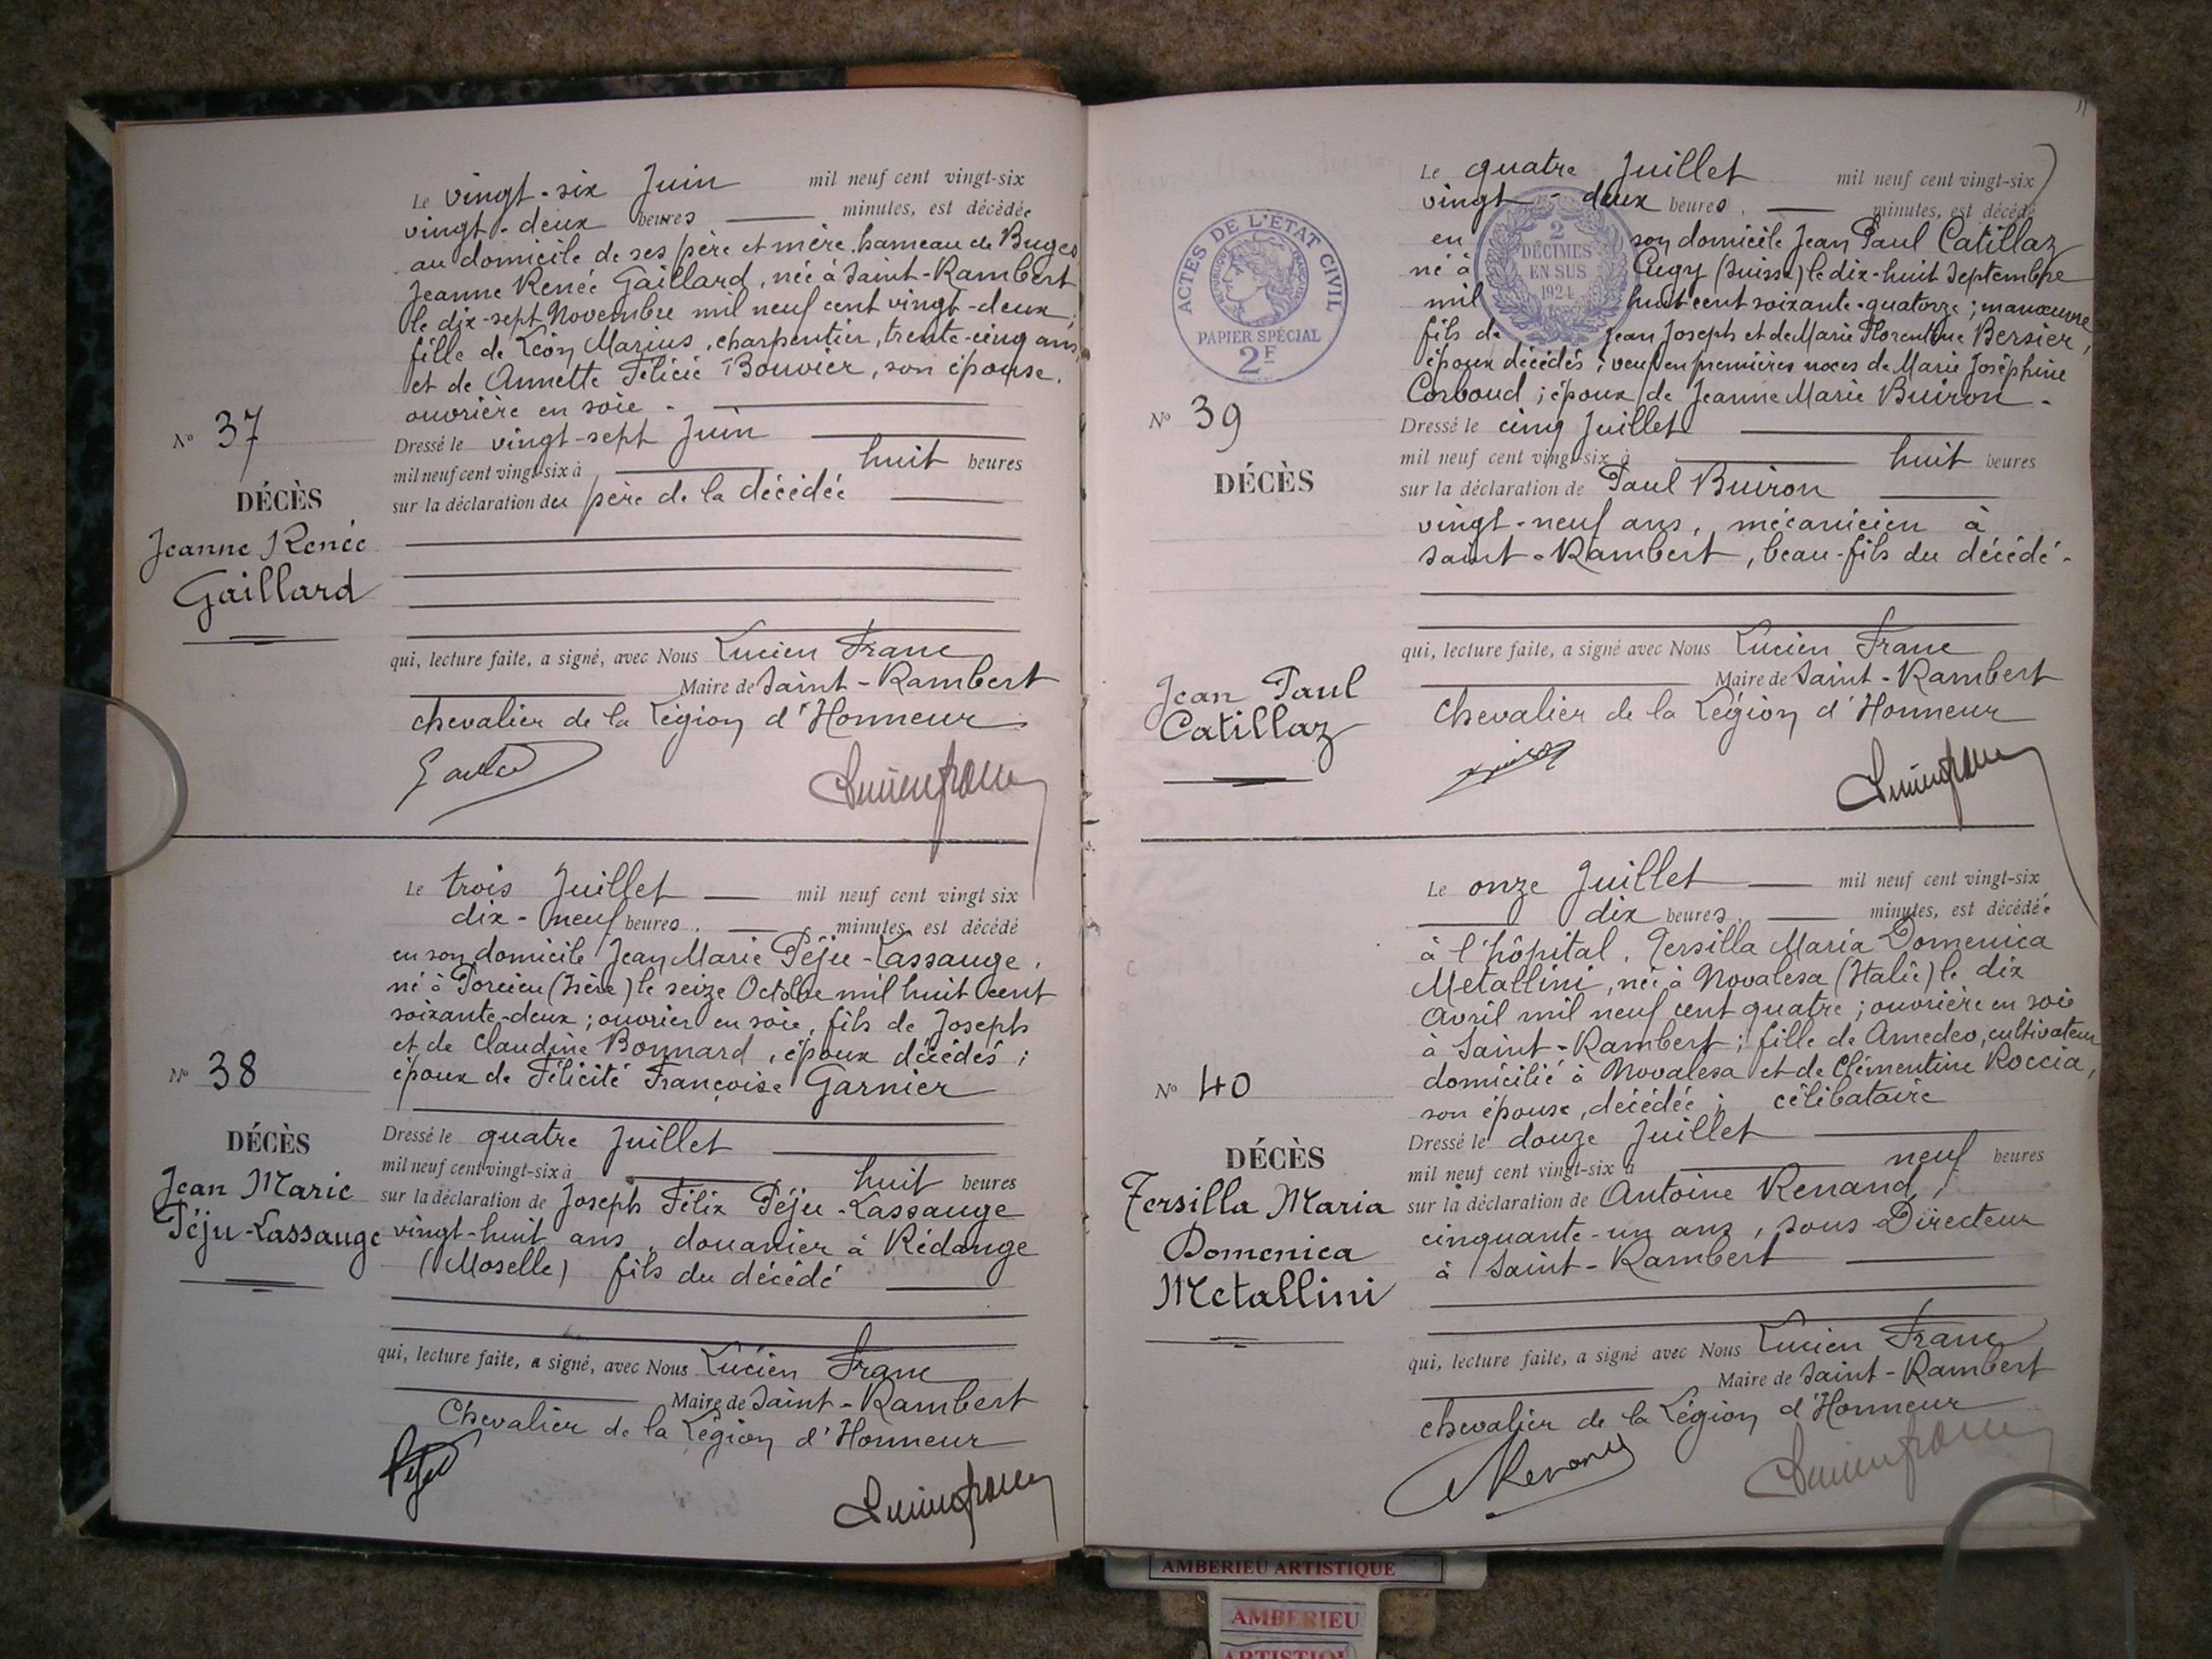 Le vingt-six Juin mil neuf cent vingt-six
vingt-deux heures minutes, est décédée
au domicile de ses père et mère hameau de Buges
Jeanne Renée Gaillard, née à Saint-Rambert
le dix-sept Novembre mil neuf cent vingt-deux;
fille de Léon Marius, charpentier, trente-cinq ans,
et de Annette Félicie Bouvier, son épouse,
ouvrière en soie -
N° 37
Dressé le vingt-sept Juin
mil neuf cent vingt-six à huit heures
DÉCÈS
sur la déclaration du père de la décédée
Jeanne Renée
Gaillard
qui, lecture faite, a signé, avec Nous Lucien Franc
Maire de Saint-Rambert
chevalier de la Légion d'Honneur
Le trois Juillet mil neuf cent vingt six
dix-neuf heures, minutes, est décédé
en son domicile Jean Marie Péju-Lassauge,
né à Porcieu (Isère) le seize Octobre mil huit cent
soixante-deux; ouvrier en soie, fils de Joseph
et de Claudine Bonnard, époux décédés;
époux de Félicité Françoise Garnier
N° 38
Dressé le quatre Juillet
DÉCÈS
mil neuf cent vingt-six à huit heures
Jean Marie
Péju-Lassauge
sur la déclaration de Joseph Félix Péju-Lassauge
vingt-huit ans, douanier à Rédange
(Moselle) fils du décédé
qui, lecture faite, a signé, avec Nous Lucien Franc
Maire de Saint-Rambert
Chevalier de la Légion d'Honneur
Le quatre Juillet mil neuf cent vingt-six
vingt-deux heures, minutes, est décédé
en son domicile Jean Paul Catillaz
né à Cugy (Suisse) le dix-huit Septembre
mil huit cent soixante-quatorze; manœuvre
fils de Jean Joseph et de Marie Florentine Bersier,
époux décédés; veuf en premières noces de Marie Joséphine
Corboud; époux de Jeanne Marie Buiron -
ACTES DE L'ETAT CIVIL
REPUBLIQUE FRANÇAISE
PAPIER SPÉCIAL
2F
2
DÉCIMES
EN SUS
1924
N° 39
Dressé le cinq Juillet
mil neuf cent vingt-six à huit heures
DÉCÈS
sur la déclaration de Paul Buiron
vingt-neuf ans, mécanicien à
Saint-Rambert, beau-fils du décédé -
qui, lecture faite, a signé avec Nous Lucien Franc
Maire de Saint-Rambert
Jean Paul
Catillaz
Chevalier de la Légion d'Honneur
Le onze Juillet mil neuf cent vingt-six
dix heures, minutes, est décédée
à l'hôpital, Tersilla Maria Domenica
Metallini, née à Novalesa (Italie) le dix
Avril mil neuf cent quatre; ouvrière en soie
à Saint-Rambert; fille de Amedeo, cultivateur
domicilié à Novalesa et de Clémentine Roccia,
son épouse, décédée; célibataire
N° 40
Dressé le douze Juillet
DÉCÈS
mil neuf cent vingt-six à neuf heures
Tersilla Maria
Domenica
Metallini
sur la déclaration de Antoine Renand,
cinquante-un ans, sous-Directeur
à Saint-Rambert
qui, lecture faite, a signé avec Nous Lucien Franc
Maire de Saint-Rambert
chevalier de la Légion d'Honneur
AMBERIEU ARTISTIQUE
AMBERIEU
ARTISTIQUE